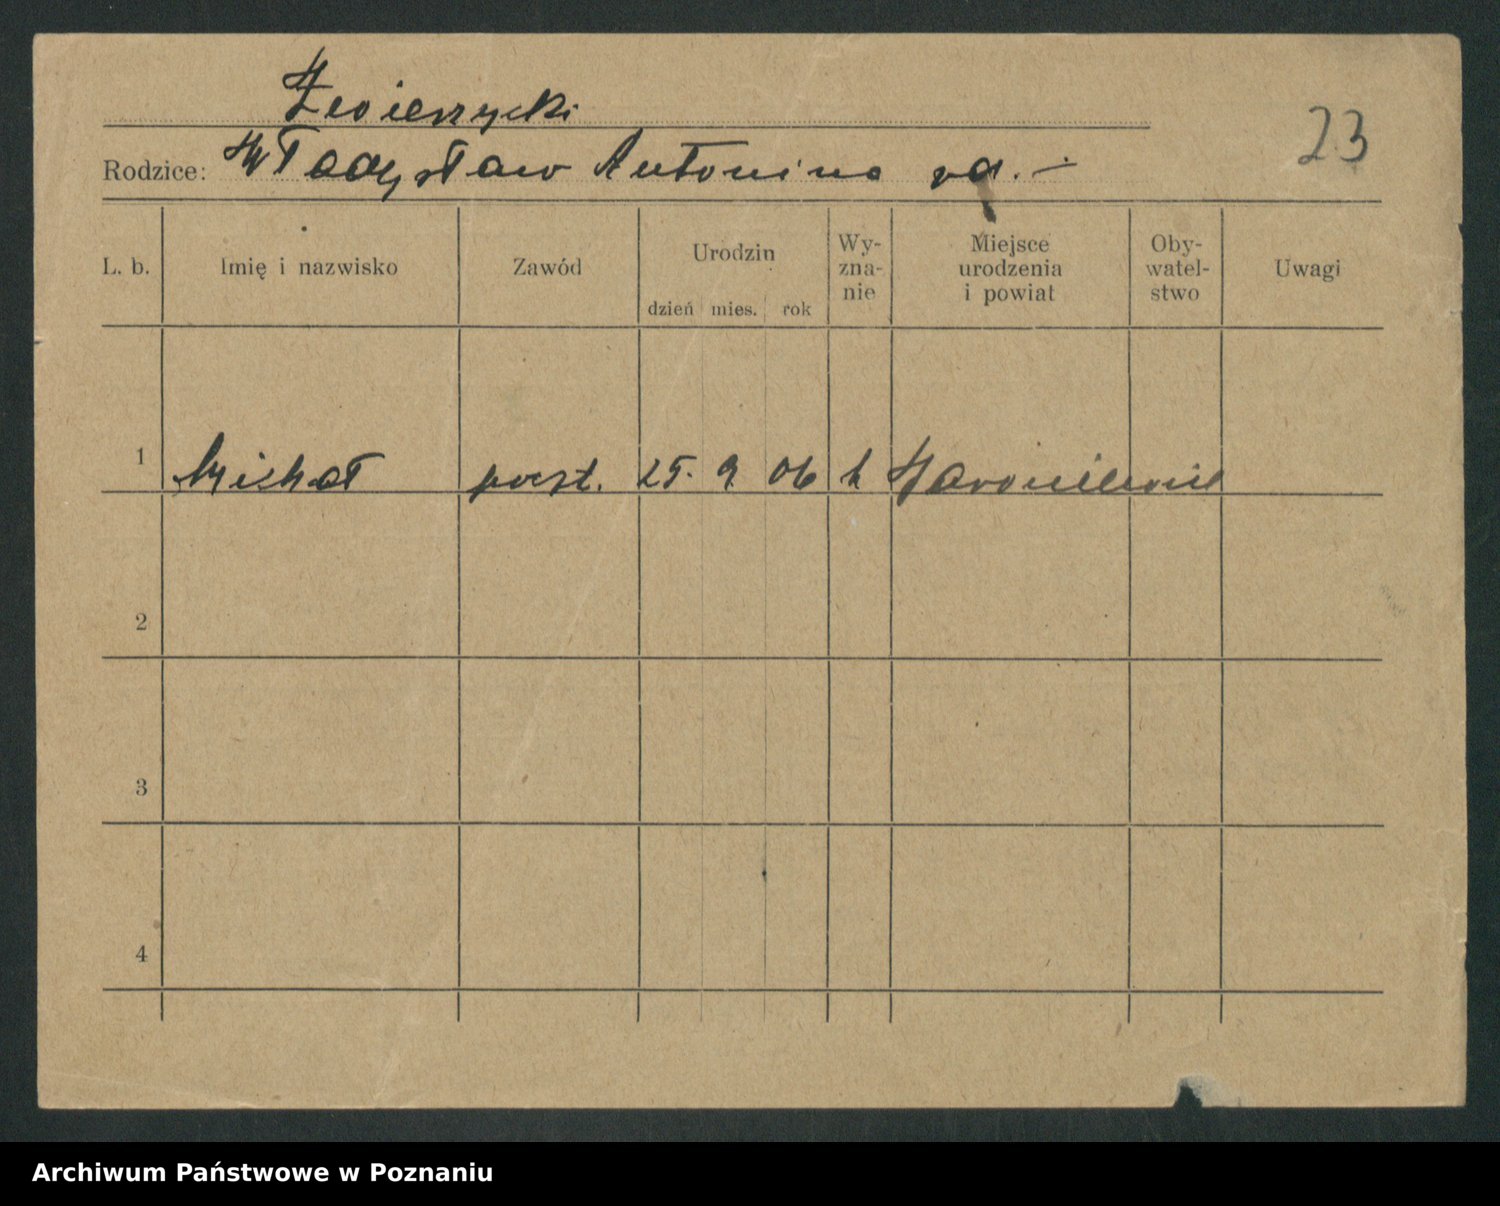 Zwierzycki
23
Rodzice: Władysław Antonina
L. b. Imię i nazwisko Zawód Urodzin dzień mies. rok Wy-zna-nie Miejsce urodzenia i powiat Oby-watel-stwo Uwagi
1 Michał post. 25. 9. 06
2
3
4
Archiwum Państwowe w Poznaniu